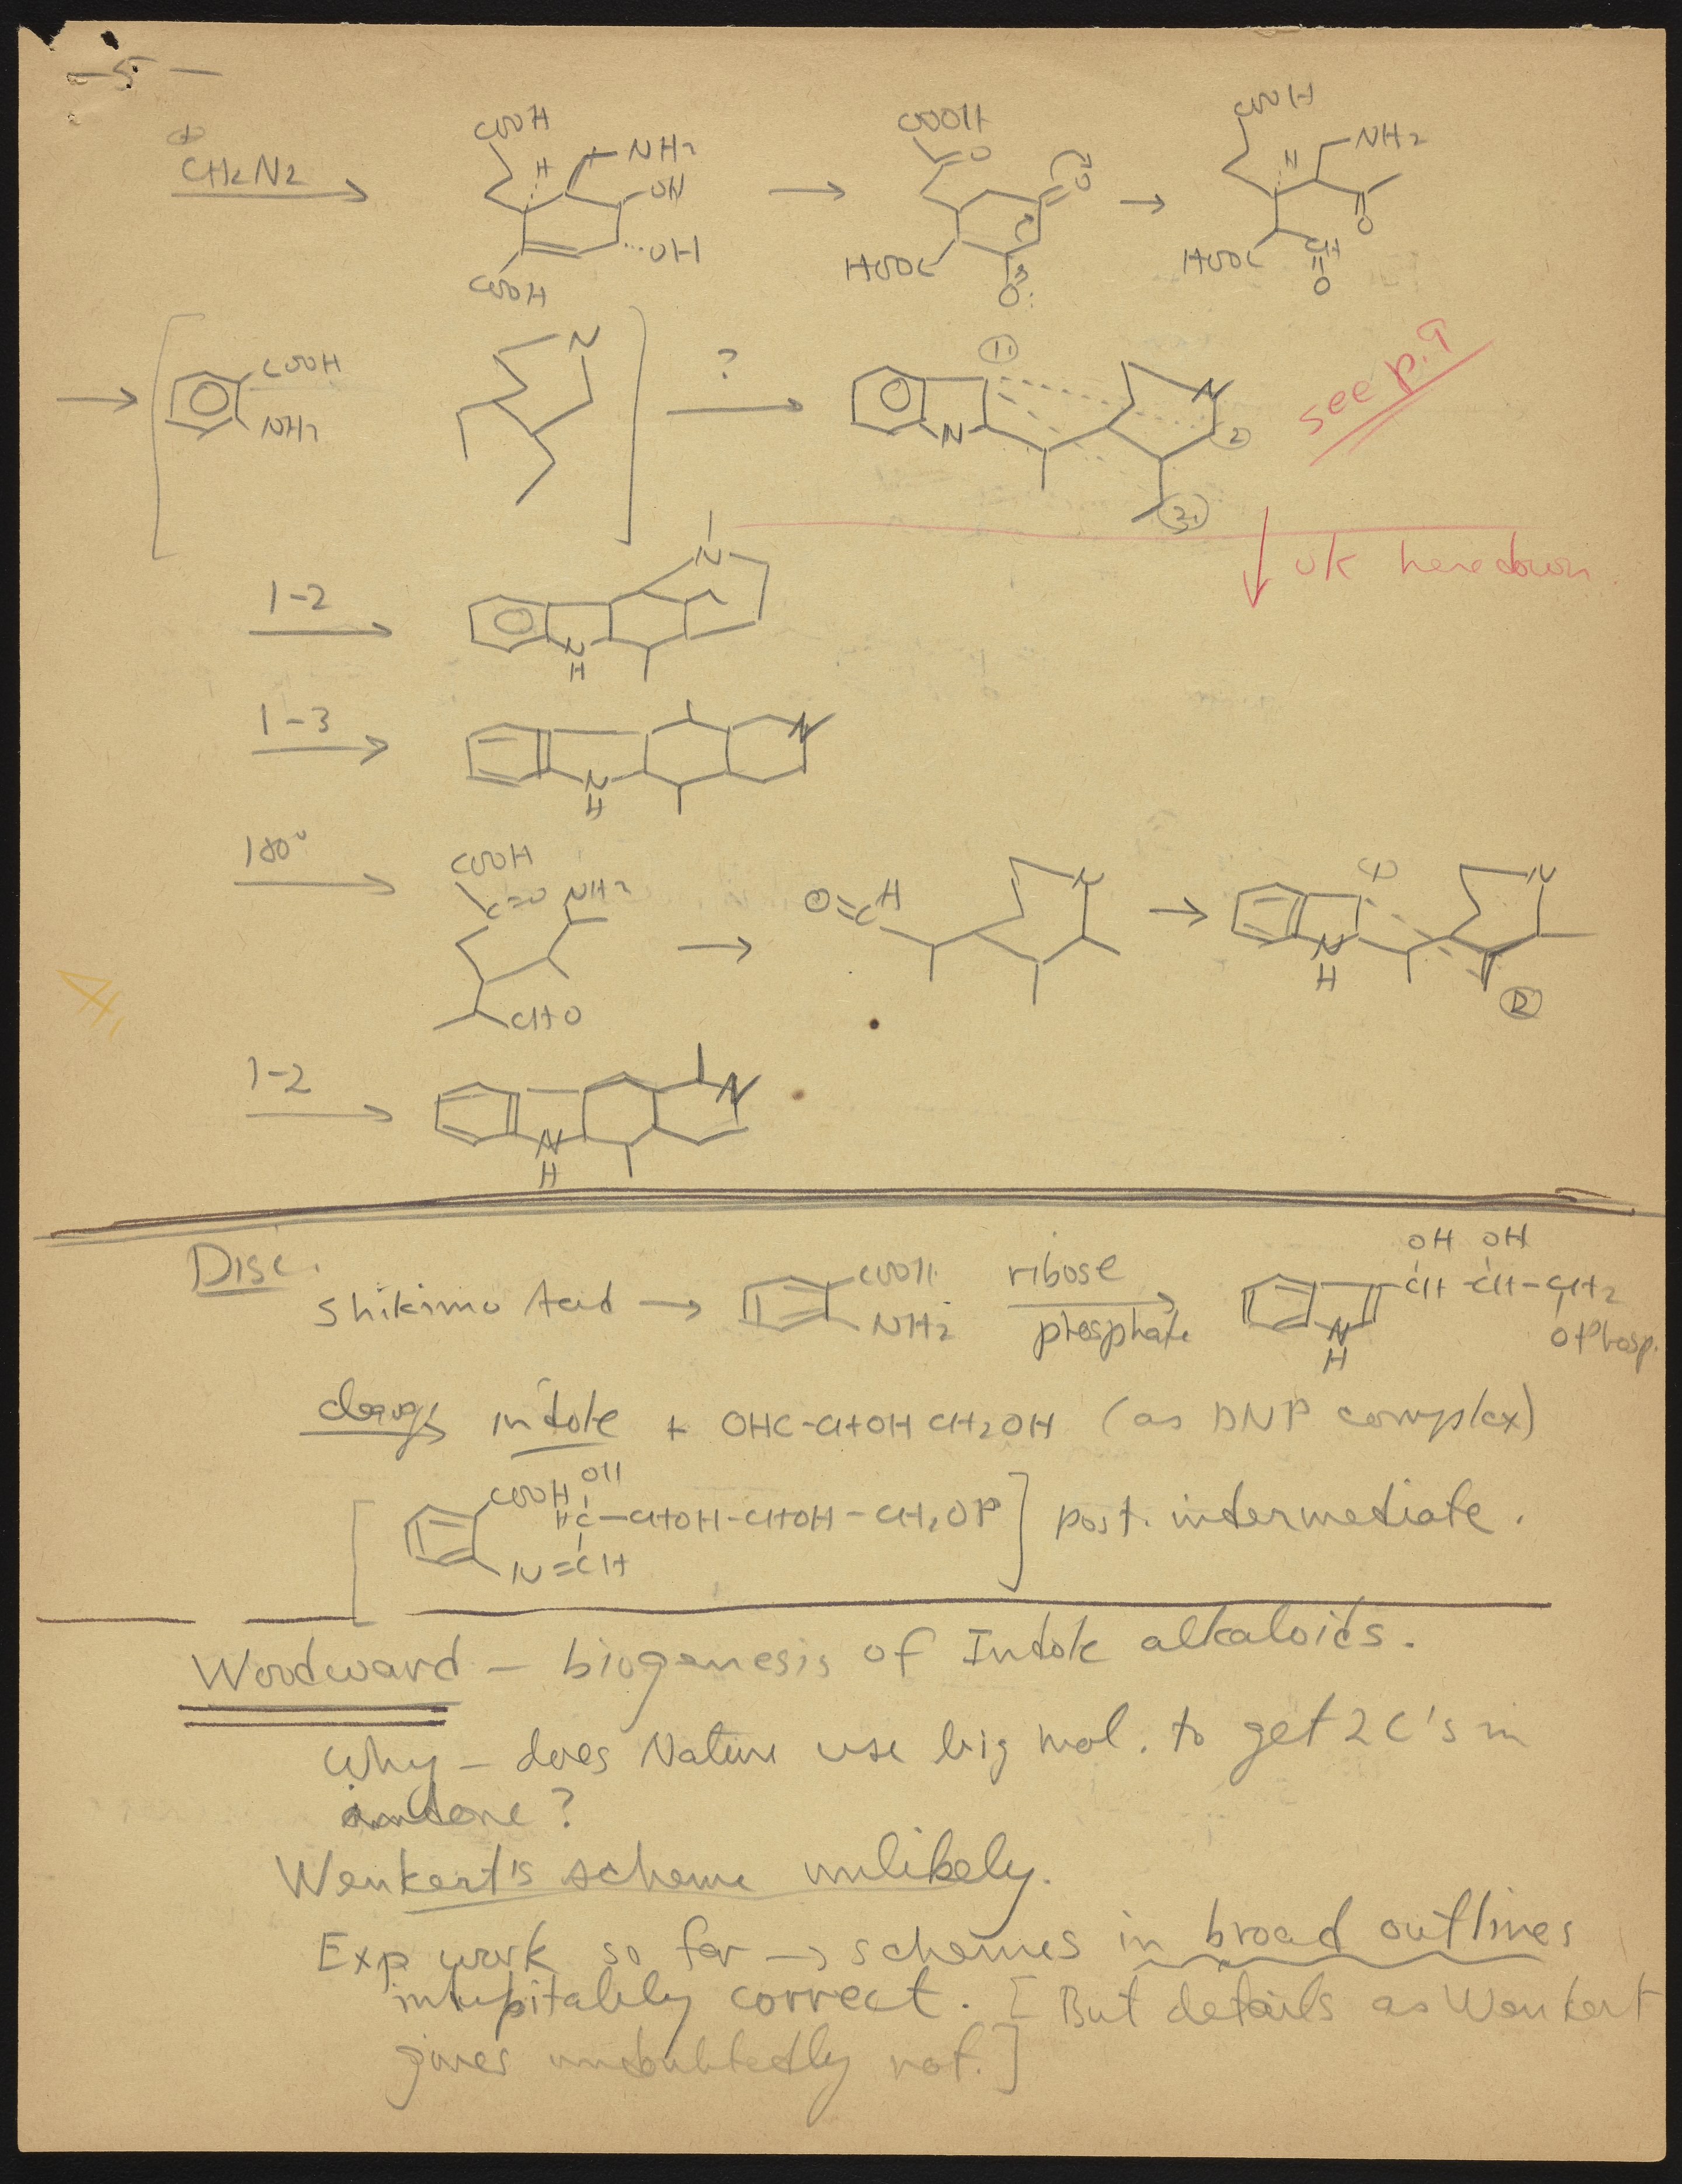 -5-
⊕ CH2N2
COOH
H
NH2
OH
OH
COOH
COOH
O
O
HOOC
O
COOH
H
NH2
O
HOOC
CH
O
COOH
NH2
N
?
1
N
N
2
3
see p. 9
ok here down
1-2
N
N
H
1-3
N
N
H
180°
COOH
C=O NH2
CHO
O=C H
N
1
N
N
H
2
1-2
N
N
H
Disc.
Shikimic Acid → COOH NH2
ribose
phosphate
OH OH
CH-CH-CH2
N
H
OPhosp.
indole + OHC-CHOH CH2OH (as DNP complex)
COOH
OH
HC-CHOH-CHOH-CH2OP] post. intermediate.
N=CH
Woodward - biogenesis of Indole alkaloids.
Why - does Nature use big mol. to get 2C's in
Wenkert's scheme unlikely.
Exp work so far → schemes in broad outlines
correct. [But details as Wenkert
gives undoubtedly not.]